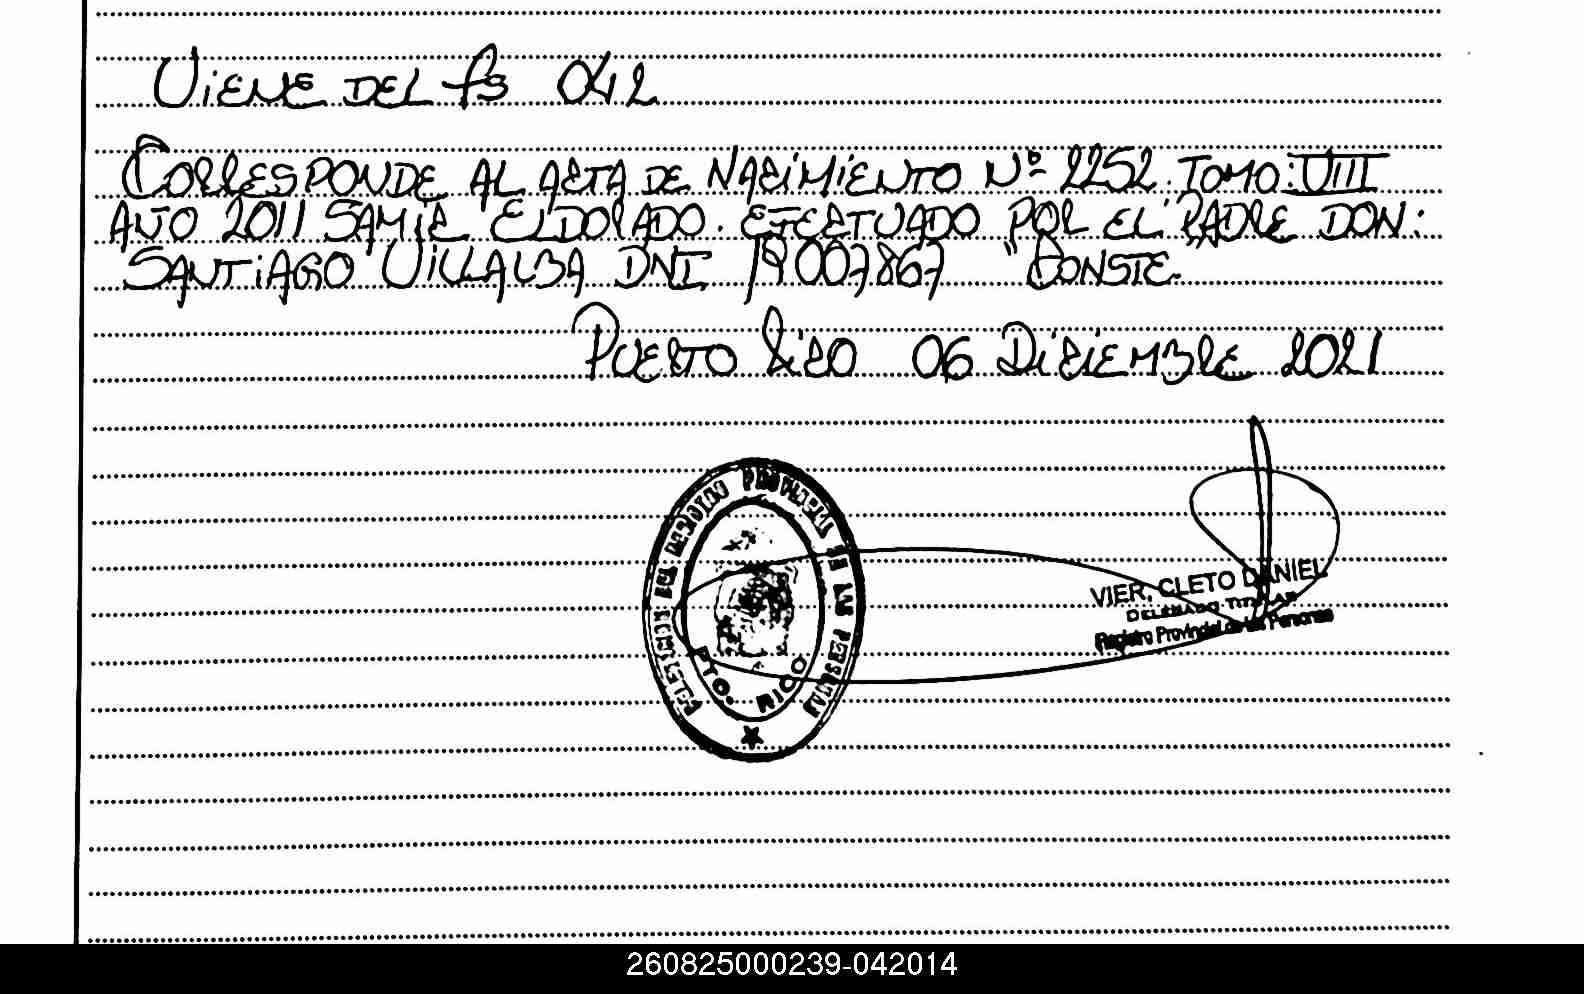 VIENE DEL fs 042
CORRESPONDE AL ACTA DE NACIMIENTO Nº 2252. TOMO: VIII
AÑO 2011 SAMIC ELDORADO. EFECTUADO POR EL PADRE DON:
SANTIAGO VILLALBA DNI. 19007867 "CONSTE.
PUERTO RICO 06 DICIEMBRE 2021
DEL REGISTRO PROVINCIAL DE LAS PERSONAS
PTO. RICO
VIER, CLETO DANIEL
DELEGADO TITULAR
Registro Provincial de las Personas
260825000239-042014